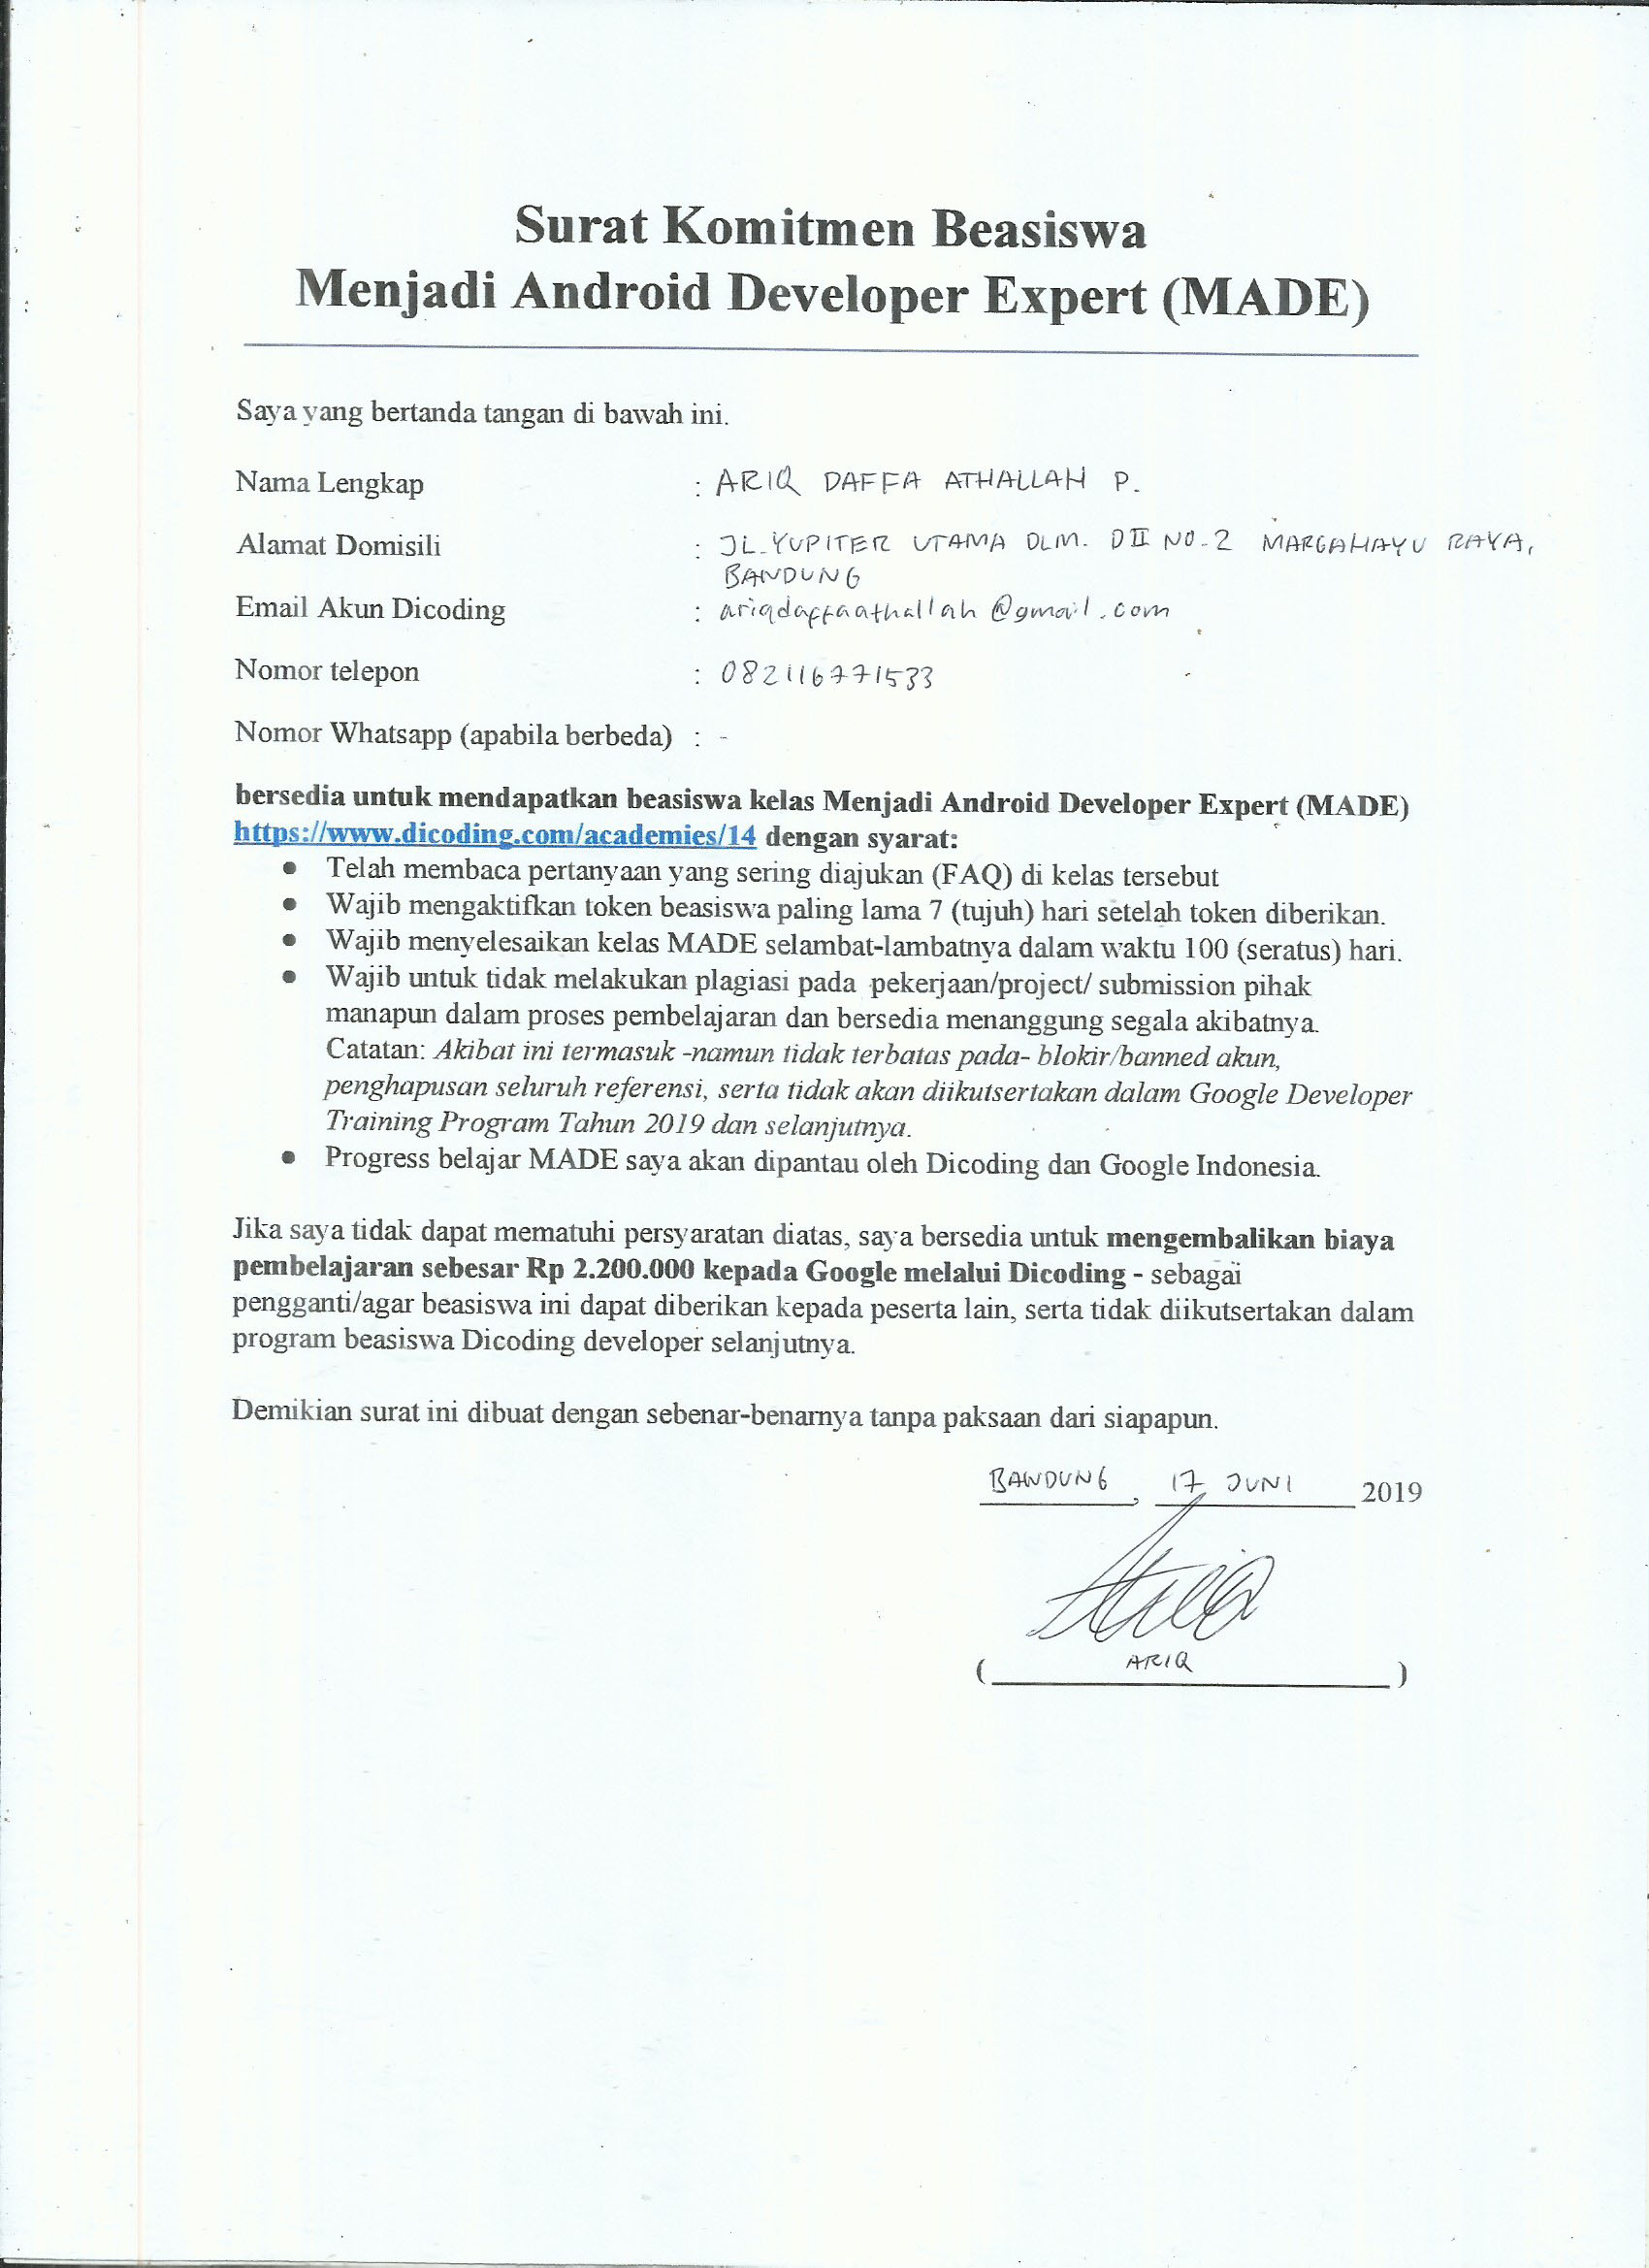 Surat Komitmen Beasiswa
Menjadi Android Developer Expert (MADE)
Saya yang bertanda tangan di bawah ini.
Nama Lengkap : ARIQ DAFFA ATHALLAH P.
Alamat Domisili : JL. YUPITER UTAMA DLM. DII NO. 2 MARGAHAYU RAYA,
BANDUNG
Email Akun Dicoding : ariqdaffaathallah@gmail.com
Nomor telepon : 082116771533
Nomor Whatsapp (apabila berbeda) : -
bersedia untuk mendapatkan beasiswa kelas Menjadi Android Developer Expert (MADE)
https://www.dicoding.com/academies/14 dengan syarat:
● Telah membaca pertanyaan yang sering diajukan (FAQ) di kelas tersebut
● Wajib mengaktifkan token beasiswa paling lama 7 (tujuh) hari setelah token diberikan.
● Wajib menyelesaikan kelas MADE selambat-lambatnya dalam waktu 100 (seratus) hari.
● Wajib untuk tidak melakukan plagiasi pada pekerjaan/project/ submission pihak
manapun dalam proses pembelajaran dan bersedia menanggung segala akibatnya.
Catatan: Akibat ini termasuk -namun tidak terbatas pada- blokir/banned akun,
penghapusan seluruh referensi, serta tidak akan diikutsertakan dalam Google Developer
Training Program Tahun 2019 dan selanjutnya.
● Progress belajar MADE saya akan dipantau oleh Dicoding dan Google Indonesia.
Jika saya tidak dapat mematuhi persyaratan diatas, saya bersedia untuk mengembalikan biaya
pembelajaran sebesar Rp 2.200.000 kepada Google melalui Dicoding - sebagai
pengganti/agar beasiswa ini dapat diberikan kepada peserta lain, serta tidak diikutsertakan dalam
program beasiswa Dicoding developer selanjutnya.
Demikian surat ini dibuat dengan sebenar-benarnya tanpa paksaan dari siapapun.
BANDUNG, 17 JUNI 2019
(ARIQ)